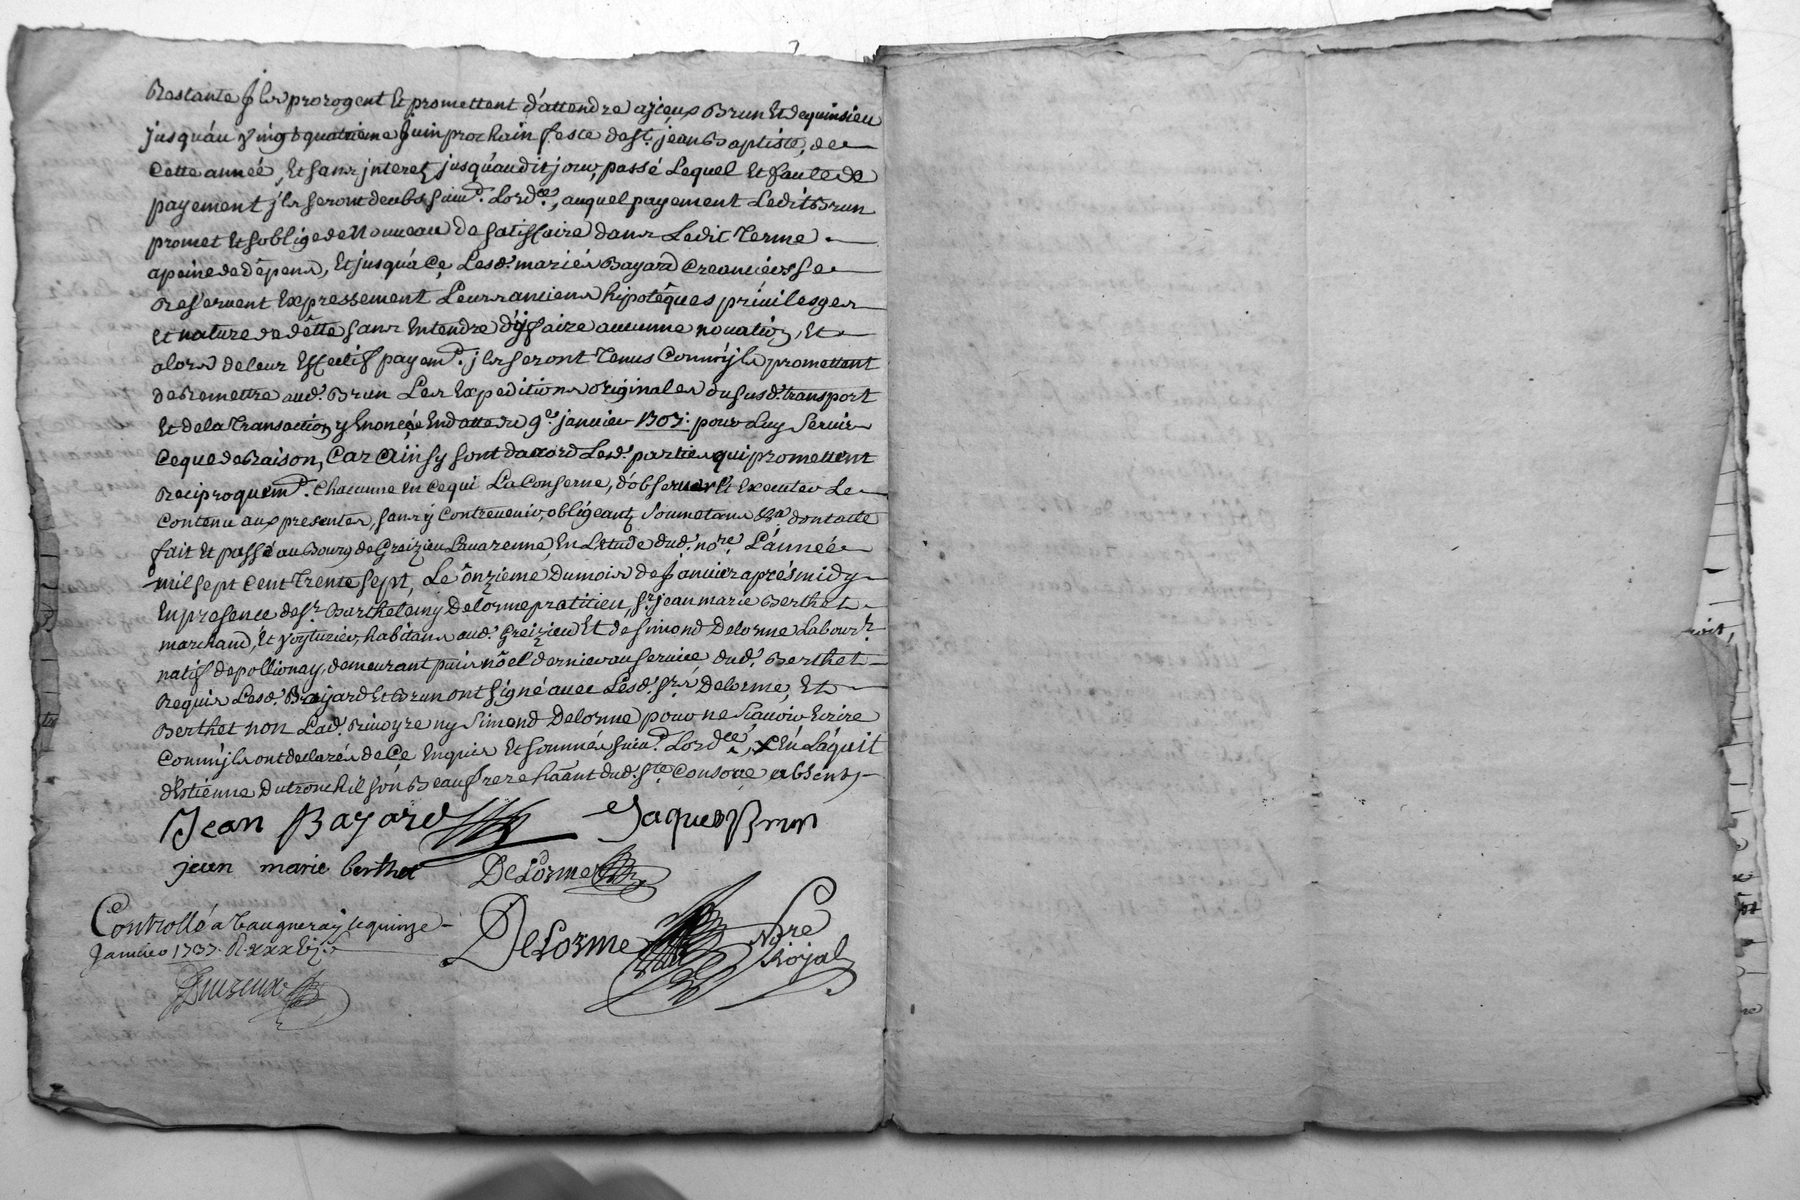 Restante Jls prorogent Et promettent d'attendre ajceux Brun Et dequinsieu
jusquáu vingt quatrieme Juin prochain feste de St. jean Baptiste, de
Cette année, Et sans jnterez jusquáudit jour, passé Lequel Et faute de
payement jls seront deubs suiud. Lordce., auquel payement Ledit Brun
promet Et soblige de Nouueau De satisfaire dans Ledit Terme
apeine de dépens, Et jusquá Ce Lesd. mariés Bayard Creanciers se
Reseruent Expressement Leurs anciens hipotêques priuileges
Et nature de dêtte sans Entendre d'ÿ faire aucunne nouation, Et
alors de leur Effectif payemd. jls seront Tenus Comm'jls promettent
de Remettre aud. Brun Les Expeditions originales du susd. transport
Et de la Transaction y Enoncée En datte du 9e. januier 1703: pour Luy Seruir
Ceque de Raison, Car Ainsy sont daccord Lesd. parties qui promettent
Reciproquemd. Chacunne En cequi La Conserne, d'obseruer Et Executer Le
Contenu aux presentes, sans ÿ Contreuenir, obligeant, Soumetans &a. dont acte
fait Et passé au Bourg de Greizieu Lauarenne, En L'etude dud. nore. L'année
mil sept Cent Trente sept, Le ônzieme Du mois de Januier aprés midy
En presence de sr. Barthelemy Delorme pratitien, sr. jean marie Berthet
marchand, Et voyturier, habitans aud. Greizieu Et de Simond Delorme Labourr.
natif de pollionay, demeurant puis nôel dernier au seruice dud. Berthet
Requis Lesd. Bayard Et Brun ont signé auec Lesd. srs Delorme, Et
Berthet non Lad. Riuoyre ny Simond Delorme pour ne sçauoir Ecrire
Comm'jls ont declarés de Ce Enquis Et sommés suiud. Lordce, x En Láquit
d'Estienne Dutronchil son Beaufrere hãant dud. Ste Consorce absent,
Jean Bayard Jaques Brun
jean marie berthet DeLorme
Controllé a Vaugneray le quinze
Januier 1737. R. xxx
DeLorme Nore
Royal